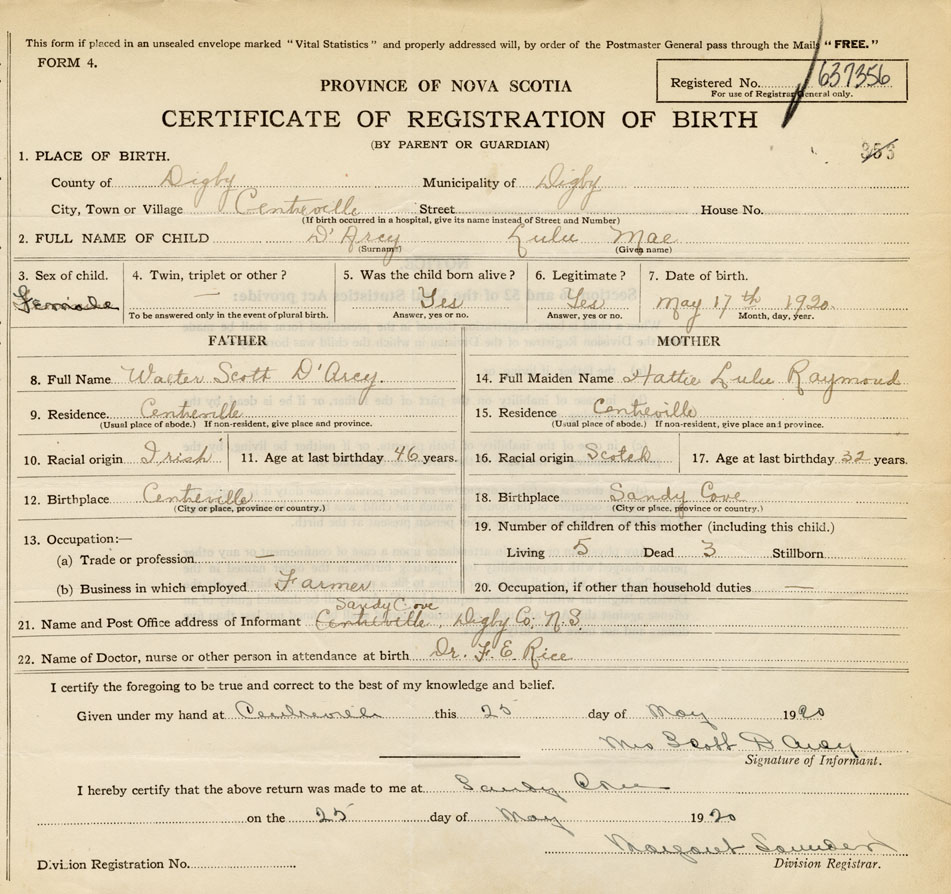 This form if placed in an unsealed envelope marked "Vital Statistics" and properly addressed will, by order of the Postmaster General pass through the Mails "FREE."
FORM 4.
Registered No. 637356
For use of Registrar General only.
PROVINCE OF NOVA SCOTIA
CERTIFICATE OF REGISTRATION OF BIRTH
(BY PARENT OR GUARDIAN)
353
1. PLACE OF BIRTH.
County of Digby Municipality of Digby
City, Town or Village Centreville Street House No.
(If birth occurred in a hospital, give its name instead of Street and Number)
2. FULL NAME OF CHILD D'Arcy Lulu Mae
(Surname) (Given name)
3. Sex of child. 4. Twin, triplet or other? 5. Was the child born alive? 6. Legitimate? 7. Date of birth.
Female — Yes Yes May 17th 1920
To be answered only in the event of plural birth. Answer, yes or no. Answer, yes or no. Month, day, year.
FATHER MOTHER
8. Full Name Walter Scott D'Arcy. 14. Full Maiden Name Hattie Lulu Raymond
9. Residence. Centreville 15. Residence Centreville
(Usual place of abode.) If non-resident, give place and province. (Usual place of abode.) If non-resident, give place and province.
10. Racial origin Irish 11. Age at last birthday 46 years. 16. Racial origin Scotch 17. Age at last birthday 32 years.
12. Birthplace Centreville 18. Birthplace Sandy Cove
(City or place, province or country.) (City or place, province or country.)
13. Occupation:— 19. Number of children of this mother (including this child.)
(a) Trade or profession — Living 5 Dead 3 Stillborn
(b) Business in which employed Farmer 20. Occupation, if other than household duties —
Sandy Cove
21. Name and Post Office address of Informant Centreville, Digby Co; N.S.
22. Name of Doctor, nurse or other person in attendance at birth Dr. F. E. Rice
I certify the foregoing to be true and correct to the best of my knowledge and belief.
Given under my hand at Centreville this 25 day of May 1920
Mrs Scott D'Arcy
Signature of Informant.
I hereby certify that the above return was made to me at Sandy Cove
on the 25 day of May 1920
Margaret Saunders
Division Registration No. Division Registrar.